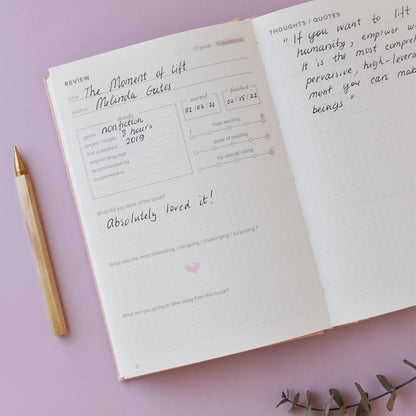 REVIEW
book audiobook
title The Moment of Lift
author Melinda Gates
details
genre nonfiction
pages / length 9 hours
first published 2019
original language
recommended by
recommended to
started
02.01.21
finished
02.15.22
how exciting
ease of reading
my overall rating
What did you think of the book?
Absolutely loved it!
What was the most interesting / intriguing / challenging / surprising ?
What are you going to take away from this book?
THOUGHTS / QUOTES
"If you want to lift
humanity, empower w
It is the most compreh
pervasive, high-levera
ment you can make
beings."